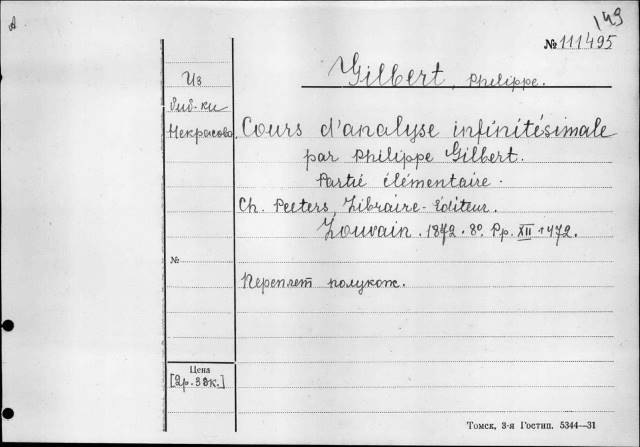 149
А
№ 111495
Gilbert, Philippe.
Из
биб-ки
Некрасова.
Cours d'analyse infinitésimale
par Philippe Gilbert.
Partie élémentaire.
Ch. Peeters, Libraire-Editeur.
Louvain. 1872. 8º. Pp. XII + 472.
№
Переплет полукож.
Цена
[2р. 38к.]
Томск, 3-я Гостип. 5344—31